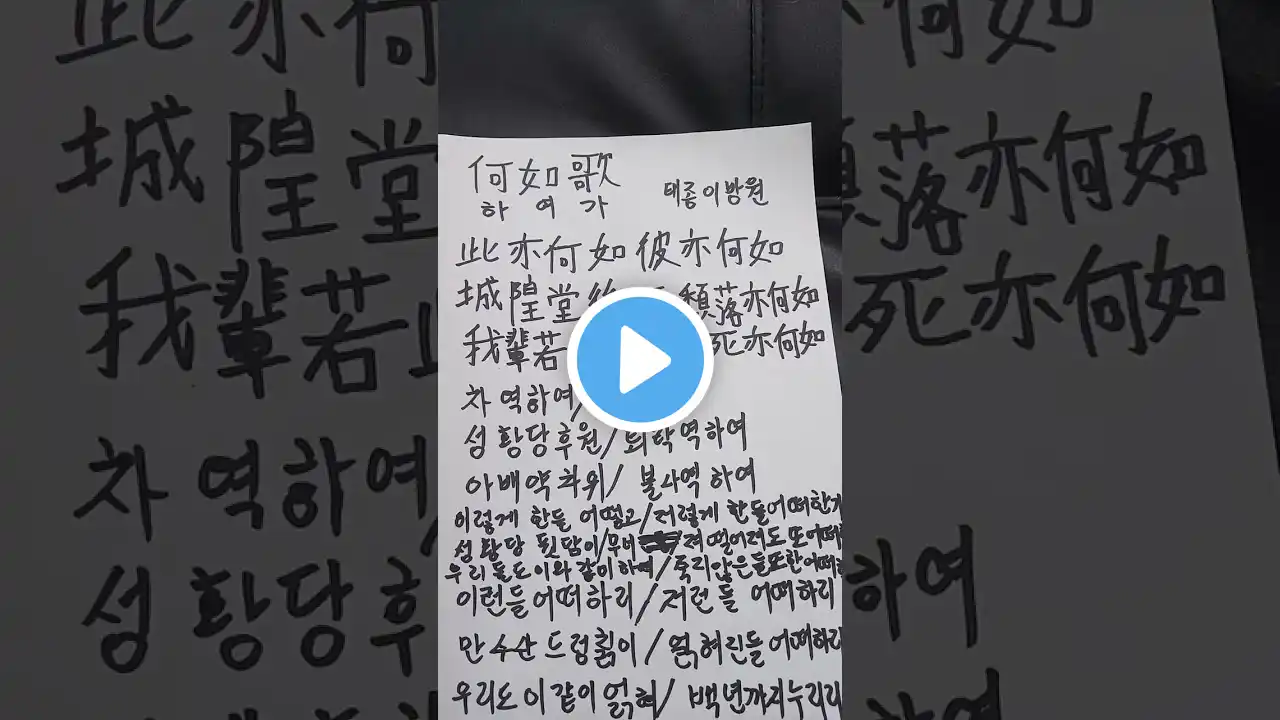 何如歌
하 여 가 태종이방원
此亦何如彼亦何如
城隍堂 頹落亦何如
我輩若 死亦何如
차 역하여/
성황당후원/ 역하여
아배약차위/ 불사역하여
이렇게 한들 어떻고/저렇게 한들어떠한가
성황당 뒷담이/무너 져떨어져도 또어떠
우리들도이와 같이하여/죽지않은들또한어떠
이런들어떠하리/저런들 어떠하리
만수산드렁칡이/얽혀진들어떠하리
우리도이같이얽혀/백년까지누리리